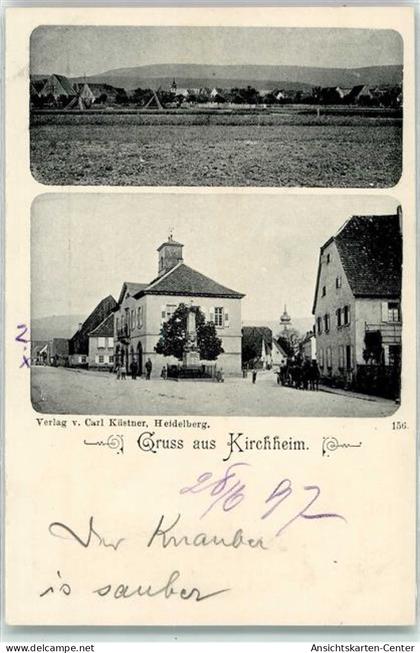 2
x
Verlag v. Carl Küstner, Heidelberg.
156.
Gruss aus Kirchheim.
28/6 97
Der Knauber
is sauber
Ansichtskarten-Center